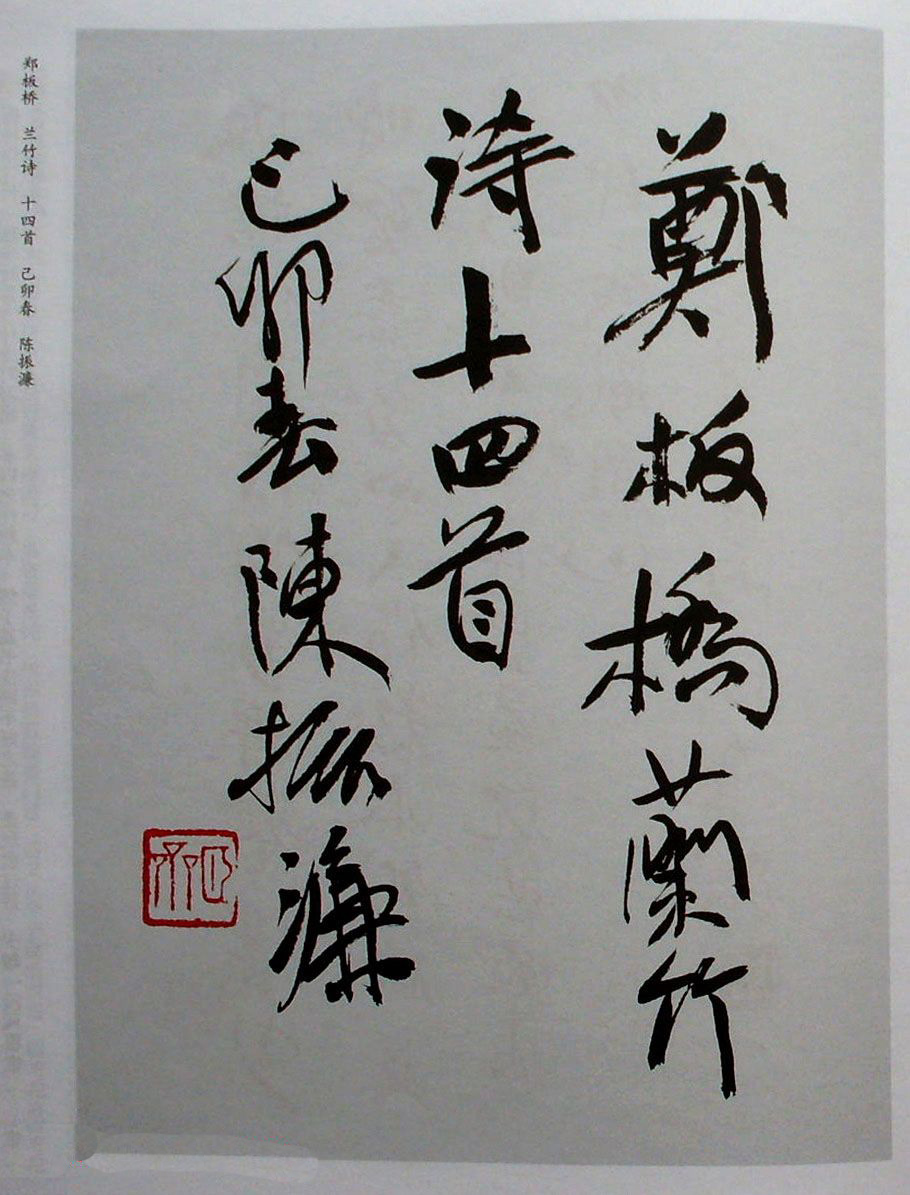 鄭板橋蘭竹
詩十四首
己卯春陳振濂
郑板桥 兰竹诗 十四首 己卯春 陈振濂